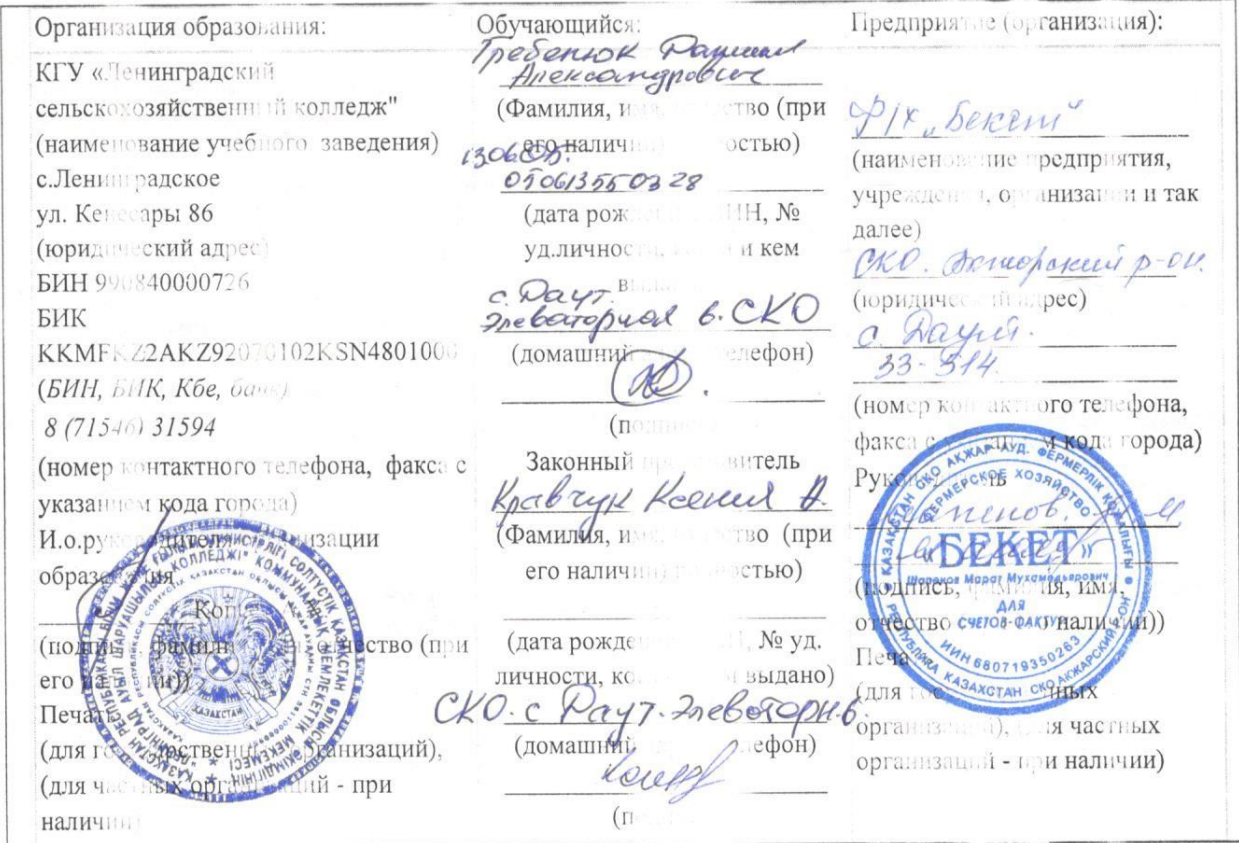 Организация образования:
КГУ «Ленинградский
сельскохозяйственный колледж"
(наименование учебного заведения)
с.Ленинградское
ул. Кенесары 86
(юридический адрес)
БИН 990840000726
БИК
KKMFKZ2AKZ92070102KSN4801000
(БИН, БИК, Кбе, банк)
8 (71546) 31594
(номер контактного телефона, факса с
указанием кода города)
И.о.руководителя организации
образования
(подпись, фамилия, имя, отчество (при
его наличии))
Печать
(для государственных организаций),
(для частных организаций - при
наличии)
Обучающийся:
Гребенюк
Александрович
(Фамилия, имя, отчество (при
его наличии) полностью)
130605.
050613550328
(дата рождения, ИИН, №
уд.личности, когда и кем
выдано)
с. Даут.
Элеваторная 6. СКО
(домашний адрес, телефон)
(подпись)
Законный представитель
Кравчук Ксения А.
(Фамилия, имя, отчество (при
его наличии) полностью)
(дата рождения, ИИН, № уд.
личности, когда и кем выдано)
СКО. с Даут. Элеваторн. 6.
(домашний адрес, телефон)
(подпись)
Предприятие (организация):
Ф/х „Бекет"
(наименование предприятия,
учреждения, организации и так
далее)
СКО. Акжарский р-он.
(юридический адрес)
с. Даут.
33-314.
(номер контактного телефона,
факса с указанием кода города)
Руководитель
(подпись, фамилия, имя,
отчество (при его наличии))
Печать
(для государственных
организаций), (для частных
организаций - при наличии)
ҚАЗАҚСТАН СҚО АҚЖАР АУД. ФЕРМЕРЛІК ҚОЖАЛЫҒЫ
ФЕРМЕРСКОЕ ХОЗЯЙСТВО
«БЕКЕТ»
Шапенов Марат Мухамедьярович
ДЛЯ
СЧЕТОВ-ФАКТУР
ИИН 680719350263
РЕСПУБЛИКА КАЗАХСТАН СКО АКЖАРСКИЙ Р-ОН